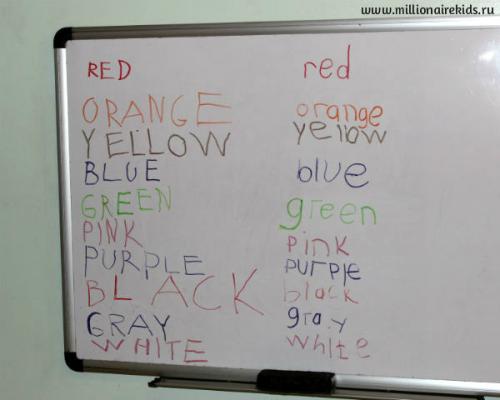 www.millionairekids.ru
RED red
ORANGE orange
YELLOW yellow
BLUE blue
GREEN green
PINK pink
PURPLE purple
BLACK black
GRAY gray
WHITE white